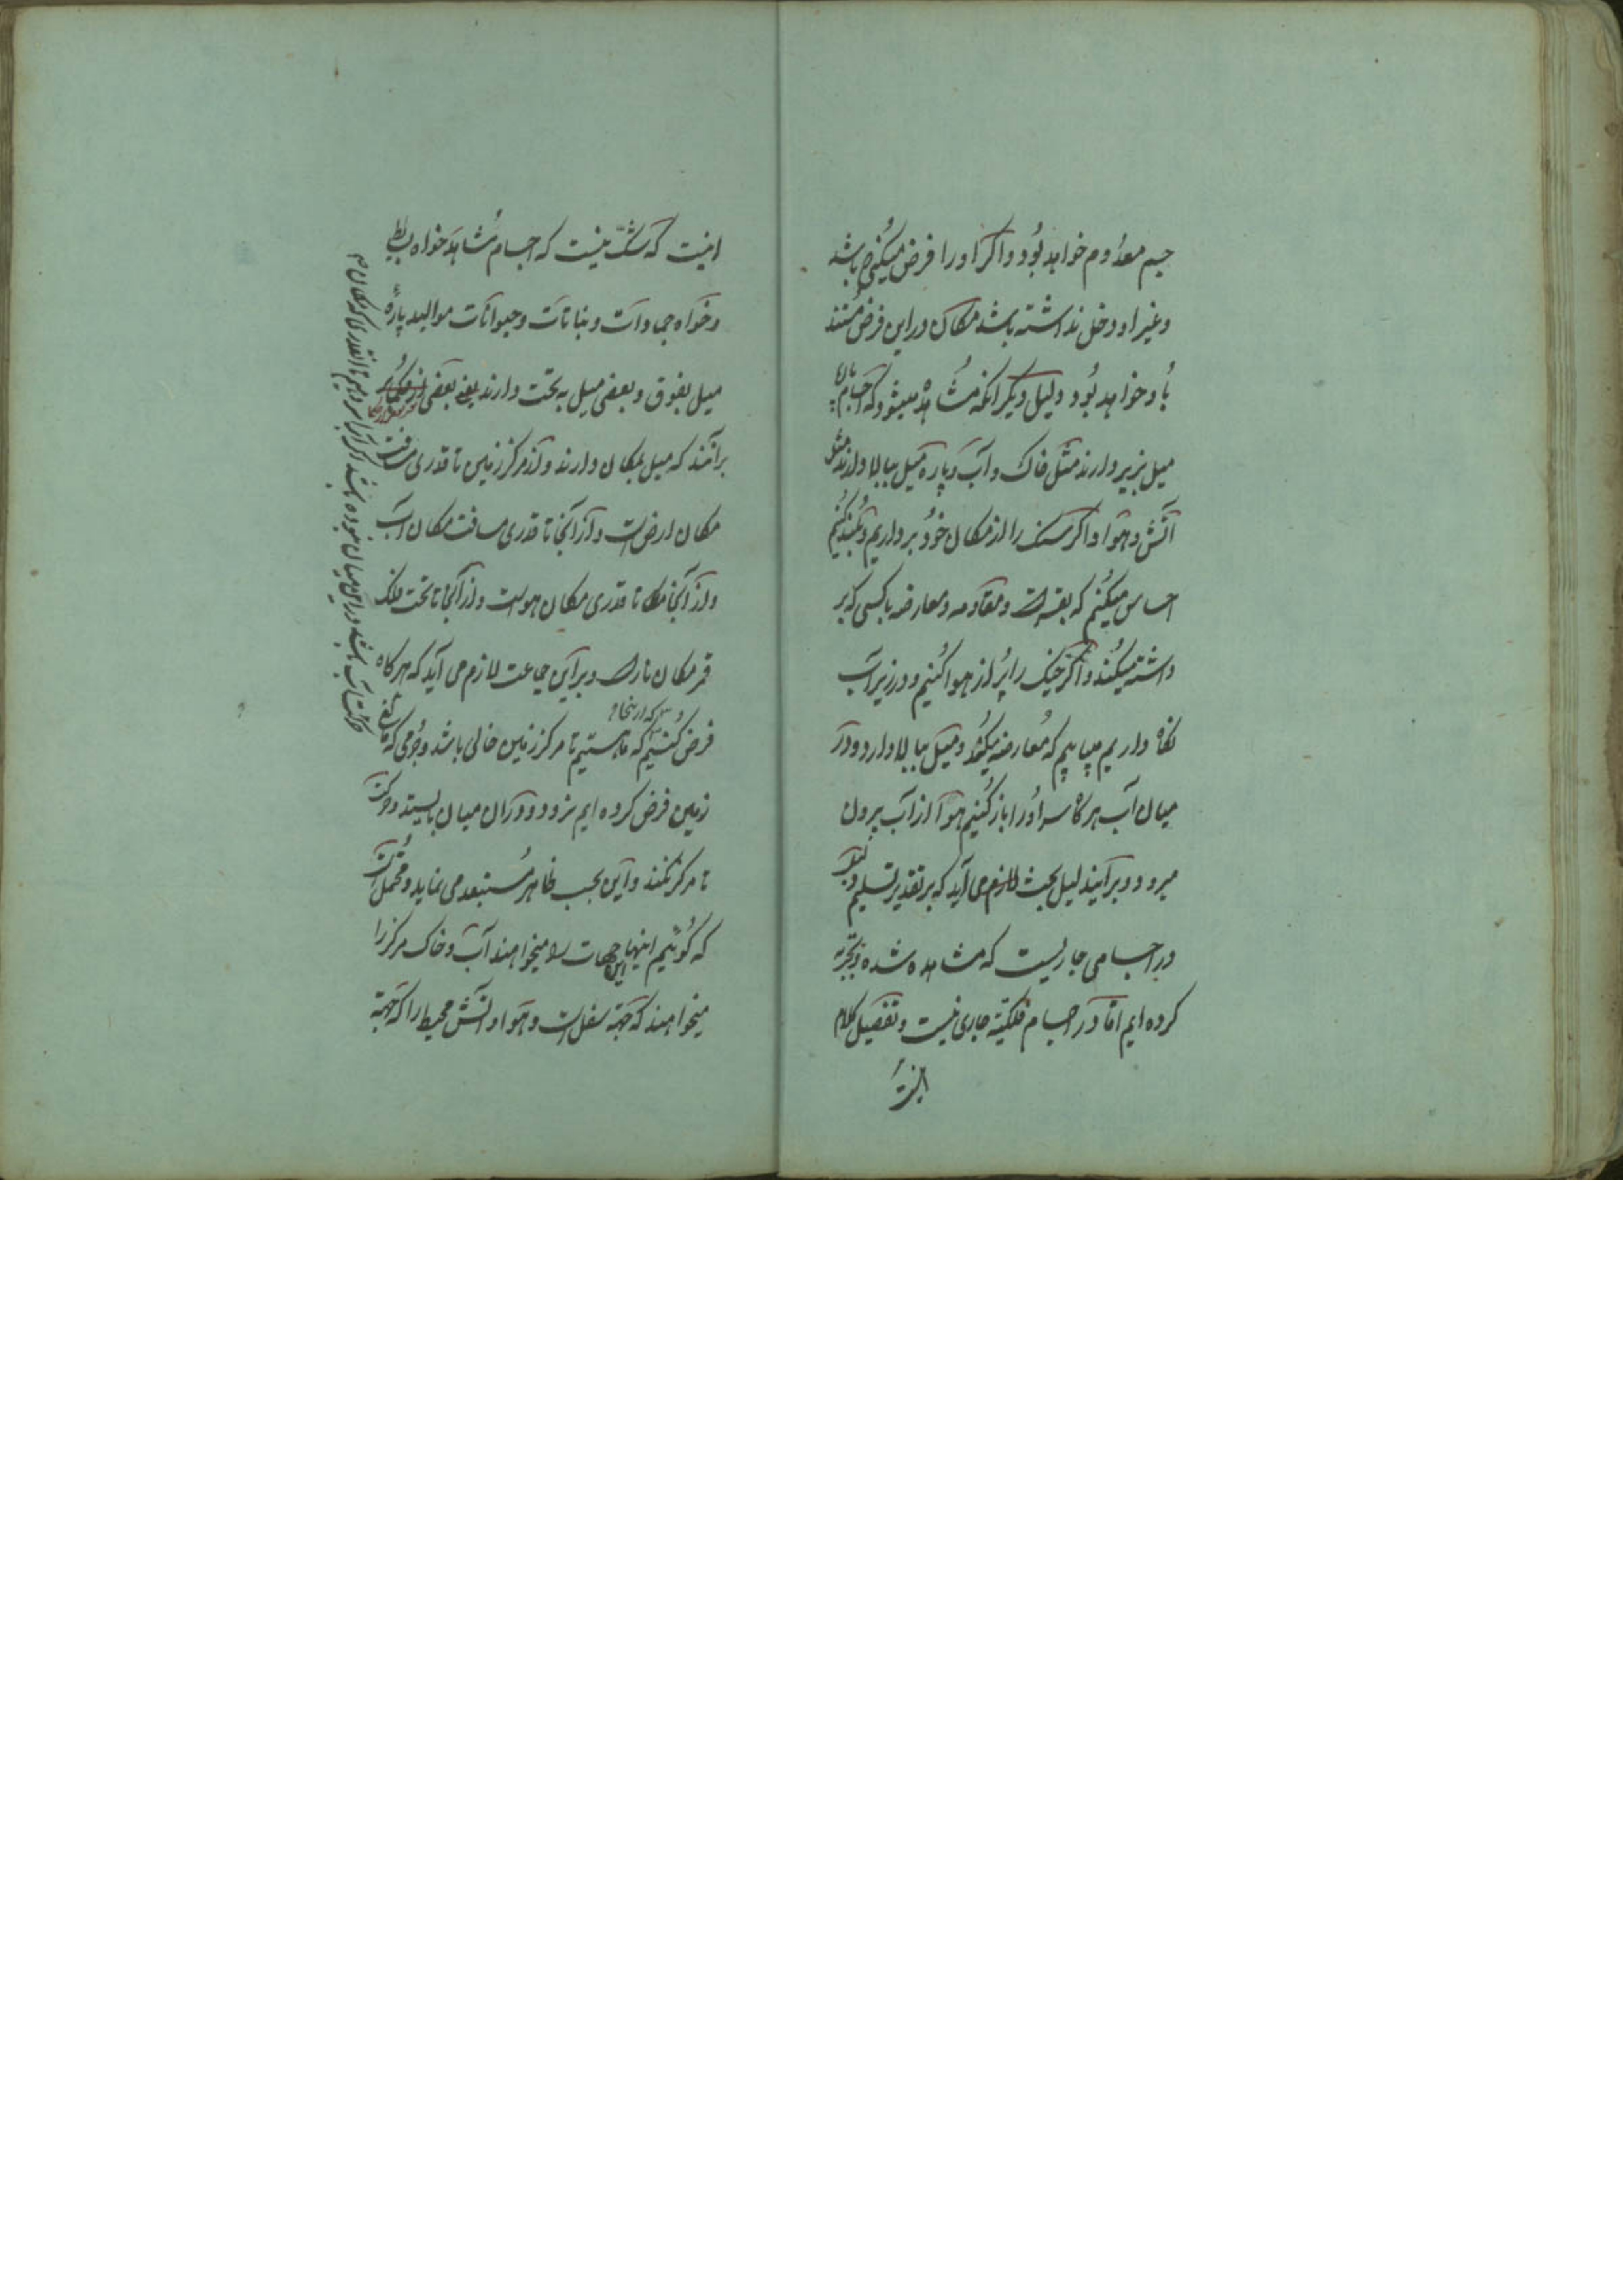 جسم معدوم خواهد بود و اگر او را فرض میکنیم باشد
و غیر او دخل نداشته باشد مکان در این فرض مستند
باو خواهد بود و دلیل دیگر آنکه مشاهد میشود که اجسام پاره
میل بزیر دارند مثل خاک و آب و پاره میل ببالا دارند مثل
آتش و هوا و اگر سنگ را از مکان خود برداریم و بلند کنیم
احساس میکنیم که بقسر است و مقاومه و معارضه با کسی که بر
داشته میکند و اگر خیک را پر از هوا کنیم و در زیر آب
نگاه داریم میابیم که معارضه میکند و میل ببالا دارد و در
میان آب هرگاه سر او را باز کنیم هوا از آب بیرون
میرود و بر این دلیل بحث لازم می آید که بر تقدیر تسلیم دلیل
در اجسامی جاریست که مشاهده شده و تجربه
کرده ایم اما در اجسام فلکیه جاری نیست و تفصیل کلام
اینست
اینست که شک نیست که اجسام مشاهد خواه بسایط
و خواه جمادات و نباتات و حیوانات موالید پاره
میل بفوق و بعضی میل به تحت دارند یعنی بعضی از حکما بر
برآنند که میل بمکان دارند و از مرکز زمین تا قدری مسافت
مکان ارض است و از آنجا تا قدری مسافت مکان آب
و از آنجا تا قدری مکان هواست و از آنجا تا تحت فلک
قمر مکان نار است و بر این جماعت لازم می آید که هرگاه
فرض کنیم که از اینجا که ما هستیم تا مرکز زمین خالی باشد و جرمی که ما
زمین فرض کرده ایم نزود و در آن میان بایستد و حرکت
تا مرکز نکند و این بحسب ظاهر مستبعد می نماید و محتمل است
که گوئیم اینها این جهات را میخواهند آب و خاک مرکز را
میخواهند که جهة سفل است و هوا و آتش محیط را که جهة